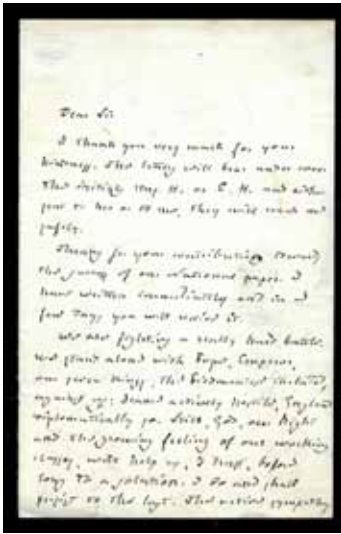 Dear Sir
I thank you very much for your
kindness. The letters will bear under cover
the initials H. or E. H. and either
sent to her or to me, they will reach me
safely.
Thanks for your contribution towards
the success of our National paper. I
have written immediately and in a
few days you will receive it.
We are fighting a really hard battle.
We stand alone with Pope, Emperor,
our seven Kings, the included,
against us: France actively hostile, England
diplomatically so. Still, God, our Right
and the growing feeling of our working
classes, will help us, I trust, before
long to a solution. I do and shall
persist to the last. The active sympathy